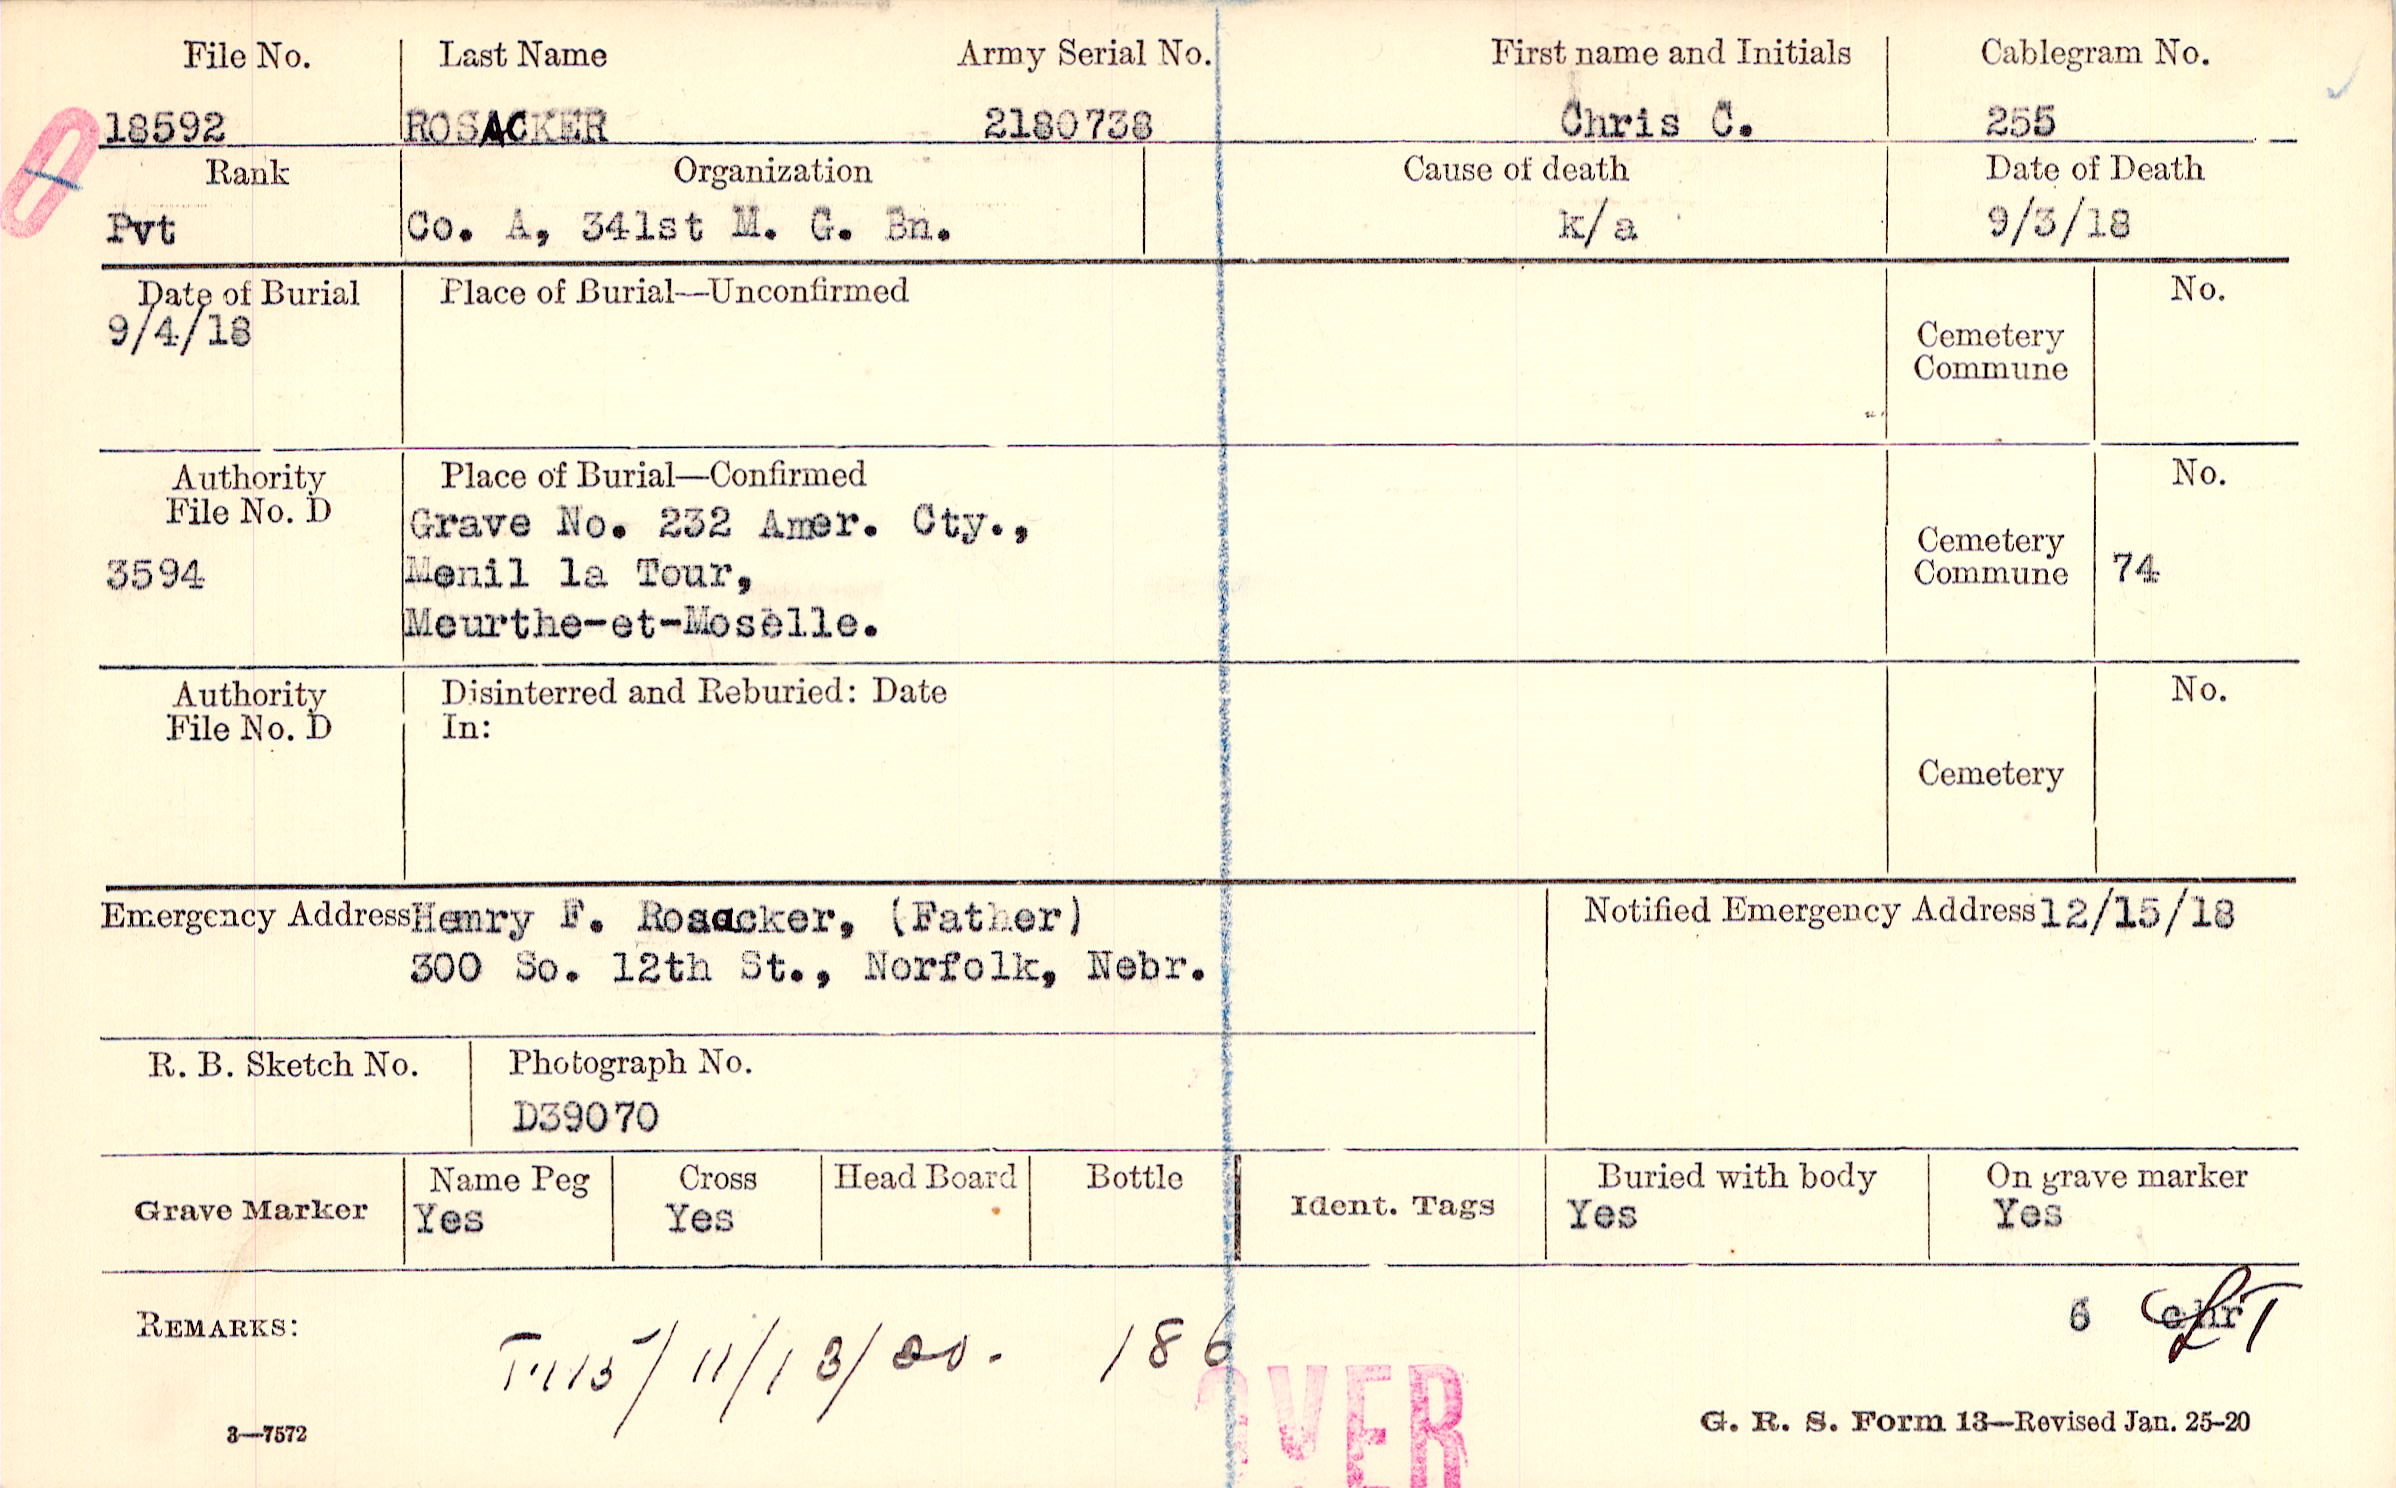 File No. Last Name Army Serial No. First name and Initials Cablegram No.
18592 ROSACKER 2180738 Chris C. 255
Rank Organization Cause of death Date of Death
Pvt Co. A, 341st M. G. Bn. k/a 9/3/18
Date of Burial Place of Burial—Unconfirmed No.
9/4/18
Cemetery
Commune
Authority Place of Burial—Confirmed No.
File No. D
Grave No. 232 Amer. Cty.,
3594 Menil la Tour,
Meurthe-et-Moselle.
Cemetery
Commune 74
Authority Disinterred and Reburied: Date No.
File No. D In:
Cemetery
Emergency Address Henry F. Rosacker, (Father) Notified Emergency Address 12/15/18
300 So. 12th St., Norfolk, Nebr.
R. B. Sketch No. Photograph No.
D39070
Grave Marker Name Peg Cross Head Board Bottle Ident. Tags Buried with body On grave marker
Yes Yes Yes Yes
REMARKS: 6 chr
11/13/20. 186
OVER
3—7572 G. R. S. Form 13—Revised Jan. 25-20